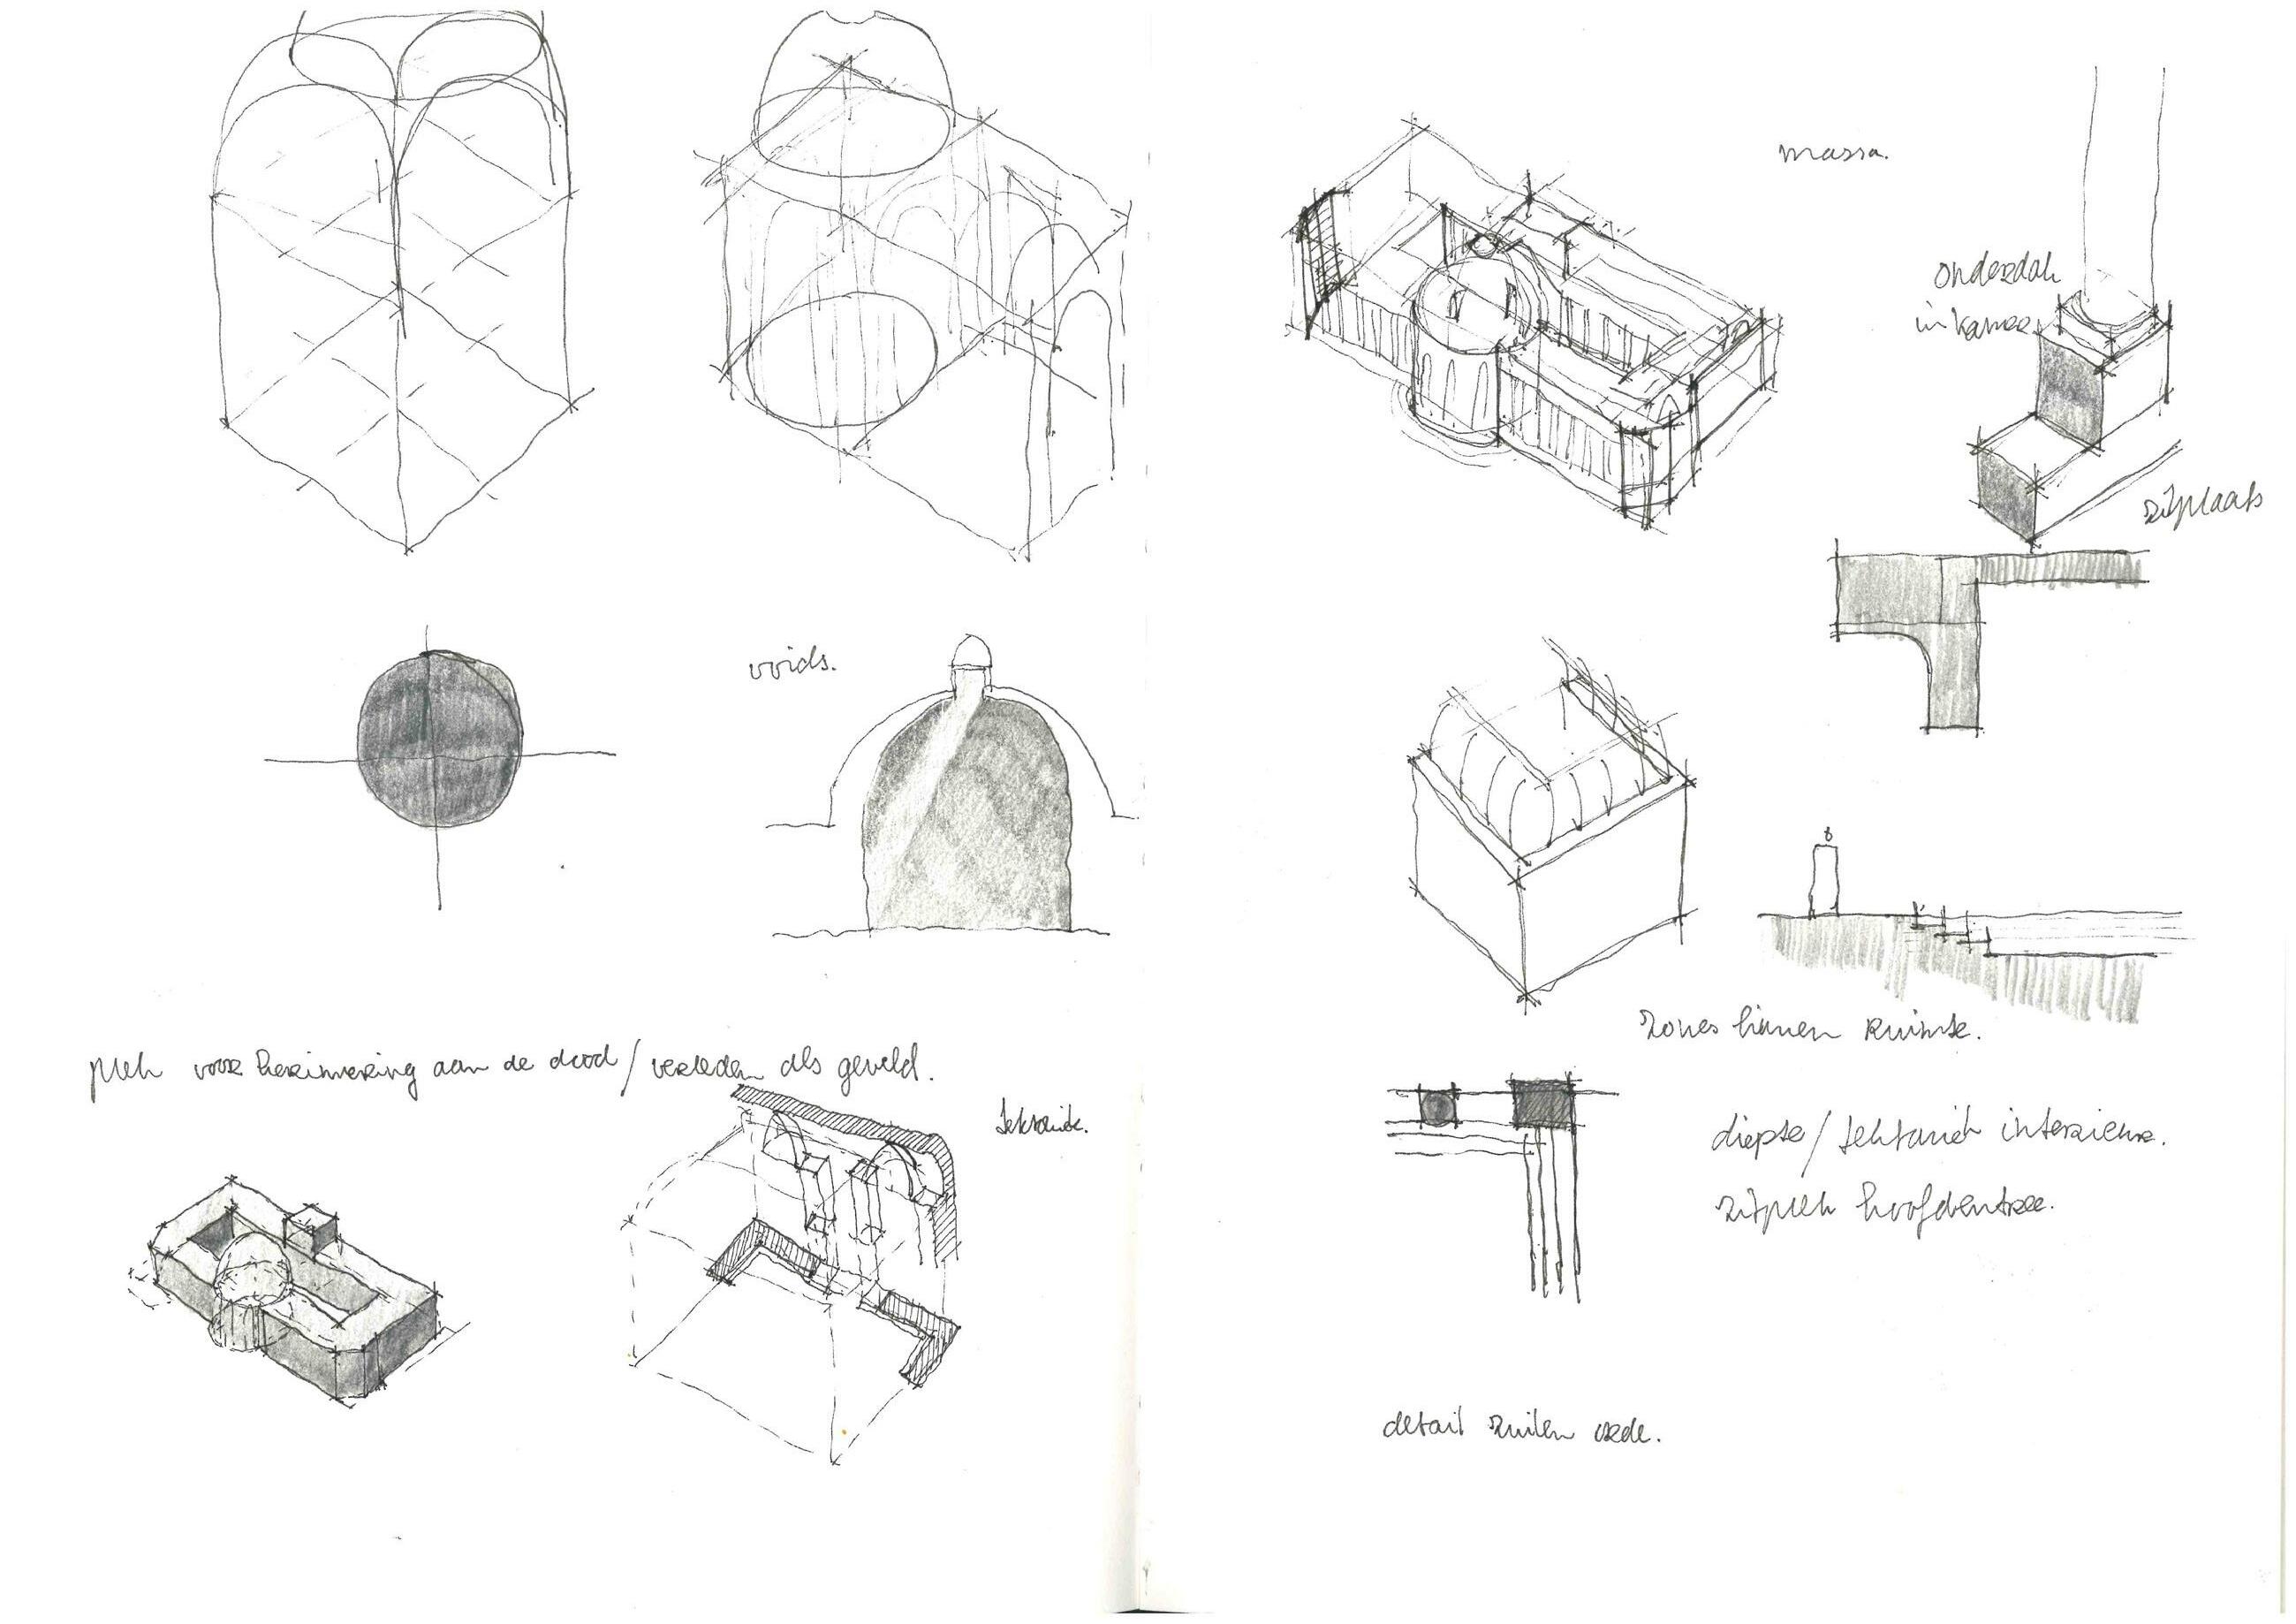 voids.
plek voor herinnering aan de dood / verleden als geveld.
tektoniek.
massa.
onderdak
in kamer
zitplaats
zones binnen ruimte.
diepte / tektoniek interieur.
zitplek hoofdentree.
detail zuilen orde.